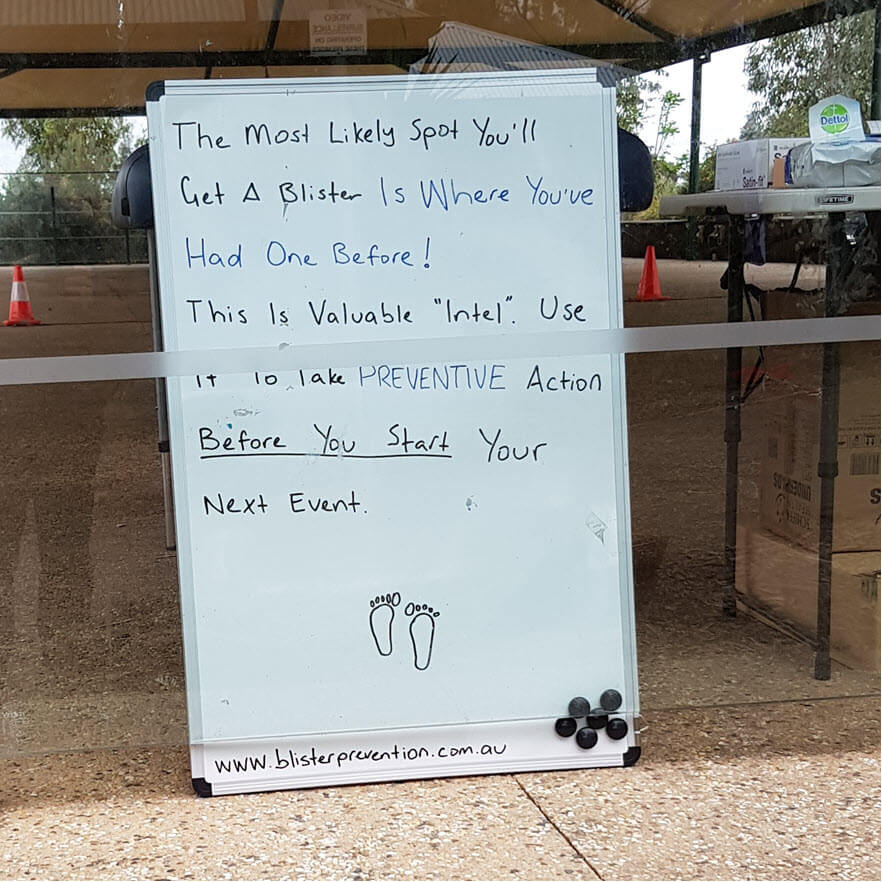 The Most Likely Spot You'll
Get A Blister Is Where You've
Had One Before!
This Is Valuable "Intel". Use
It To Take PREVENTIVE Action
Before You Start Your
Next Event.
www.blisterprevention.com.au
Dettol
Satin-fit
LIFETIME